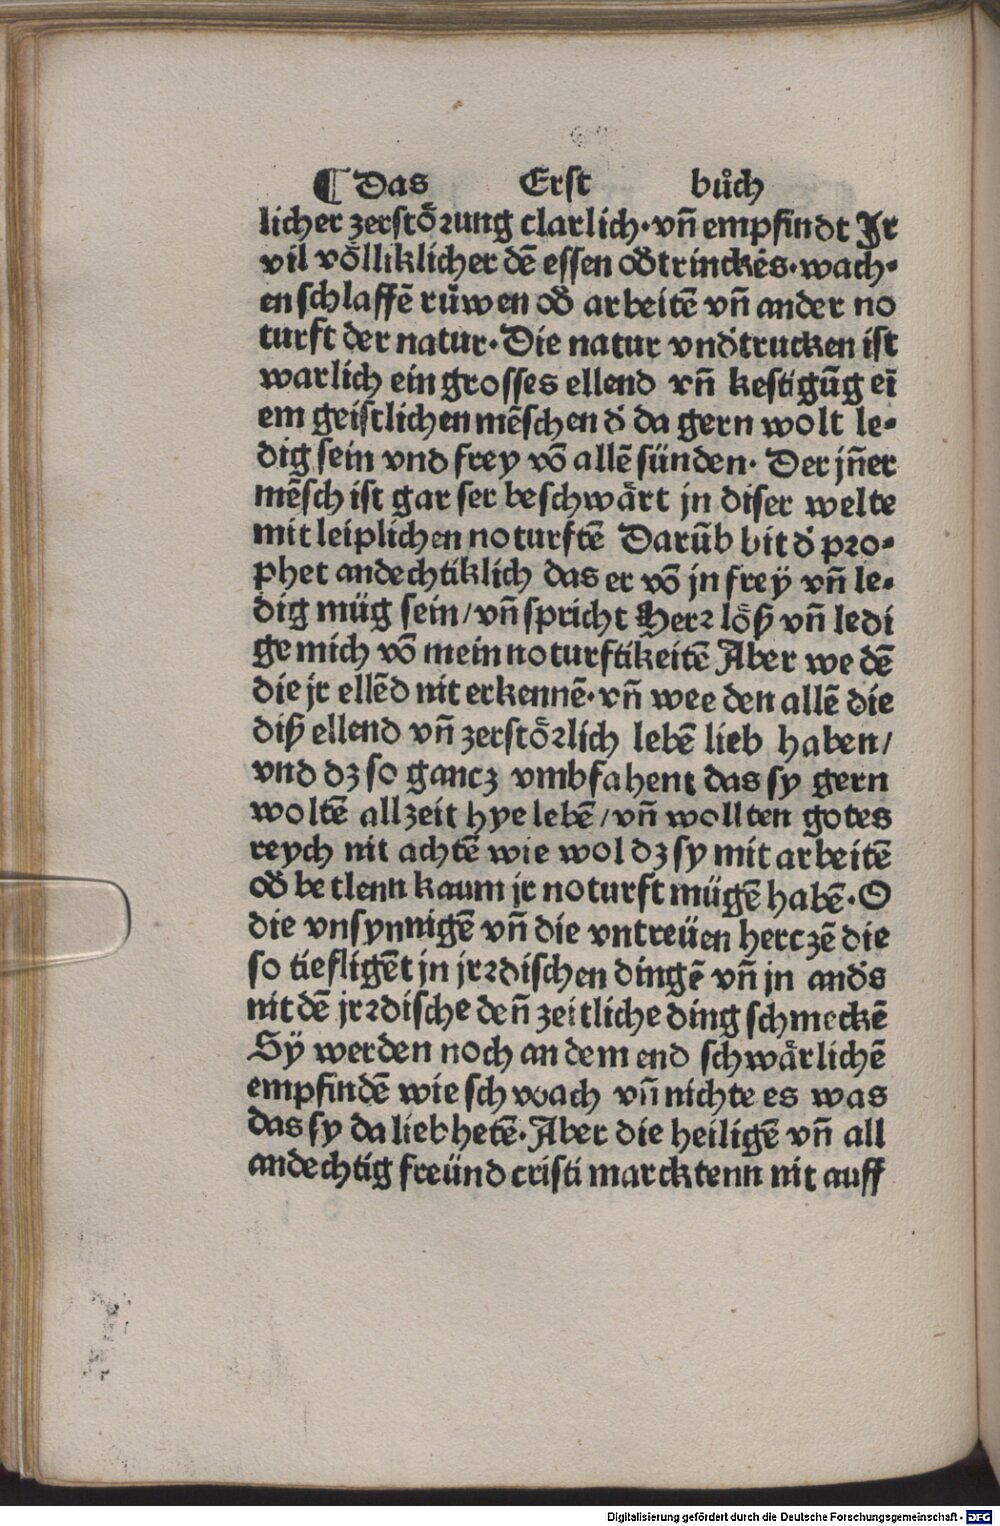 ¶ Das Erst bůch
licher zerstöꝛung clarlich·vñ empfindt Jr
vil völliklicher dē essen od̕ trinckēs·wach⸗
en schlaffē růwen od̕ arbeitē vñ ander no
turft der natur·Die natur vnd̕trucken ist
warlich ein grosses ellend vñ kestigūg eī
em geistlichen mēschen d̕ da gern wolt le⸗
dig sein vnd frey vō allē sünden· Der jñer
mēsch ist gar ser beschwärt jn diser welte
mit leiplichen noturftē Darūb bit d̕ pꝛo⸗
phet andechtiklich das er vō jn frey vñ le⸗
dig müg sein/vñ spricht Herꝛ löß vñ ledi
ge mich vō mein noturftikeitē Aber we dē
die jr ellēd nit erkennē·vñ wee den allē die
diß ellend vñ zerstöꝛlich lebē lieb haben/
vnd dz so gancz vmbfahent das sy gern
woltē allzeit hye lebē/vñ wollten gotes
reych nit achtē wie wol dz sy mit arbeitē
od̕ betlenn kaum jr noturft mügē habē·O
die vnsynnigē vñ die vntreüen herczē die
so tief ligēt jn jrꝛdischen dingē vñ jn and̕s
nit dē jrꝛdische deñ zeitliche ding schmeckē
Sÿ werden noch an dem end schwärlichē
empfindē wie schwach vñ nichte es was
das sy da lieb hetē·Aber die heiligē vñ all
andechtig freünd cristi marcktenn nit auff
Digitalisierung gefördert durch die Deutsche Forschungsgemeinschaft - DFG